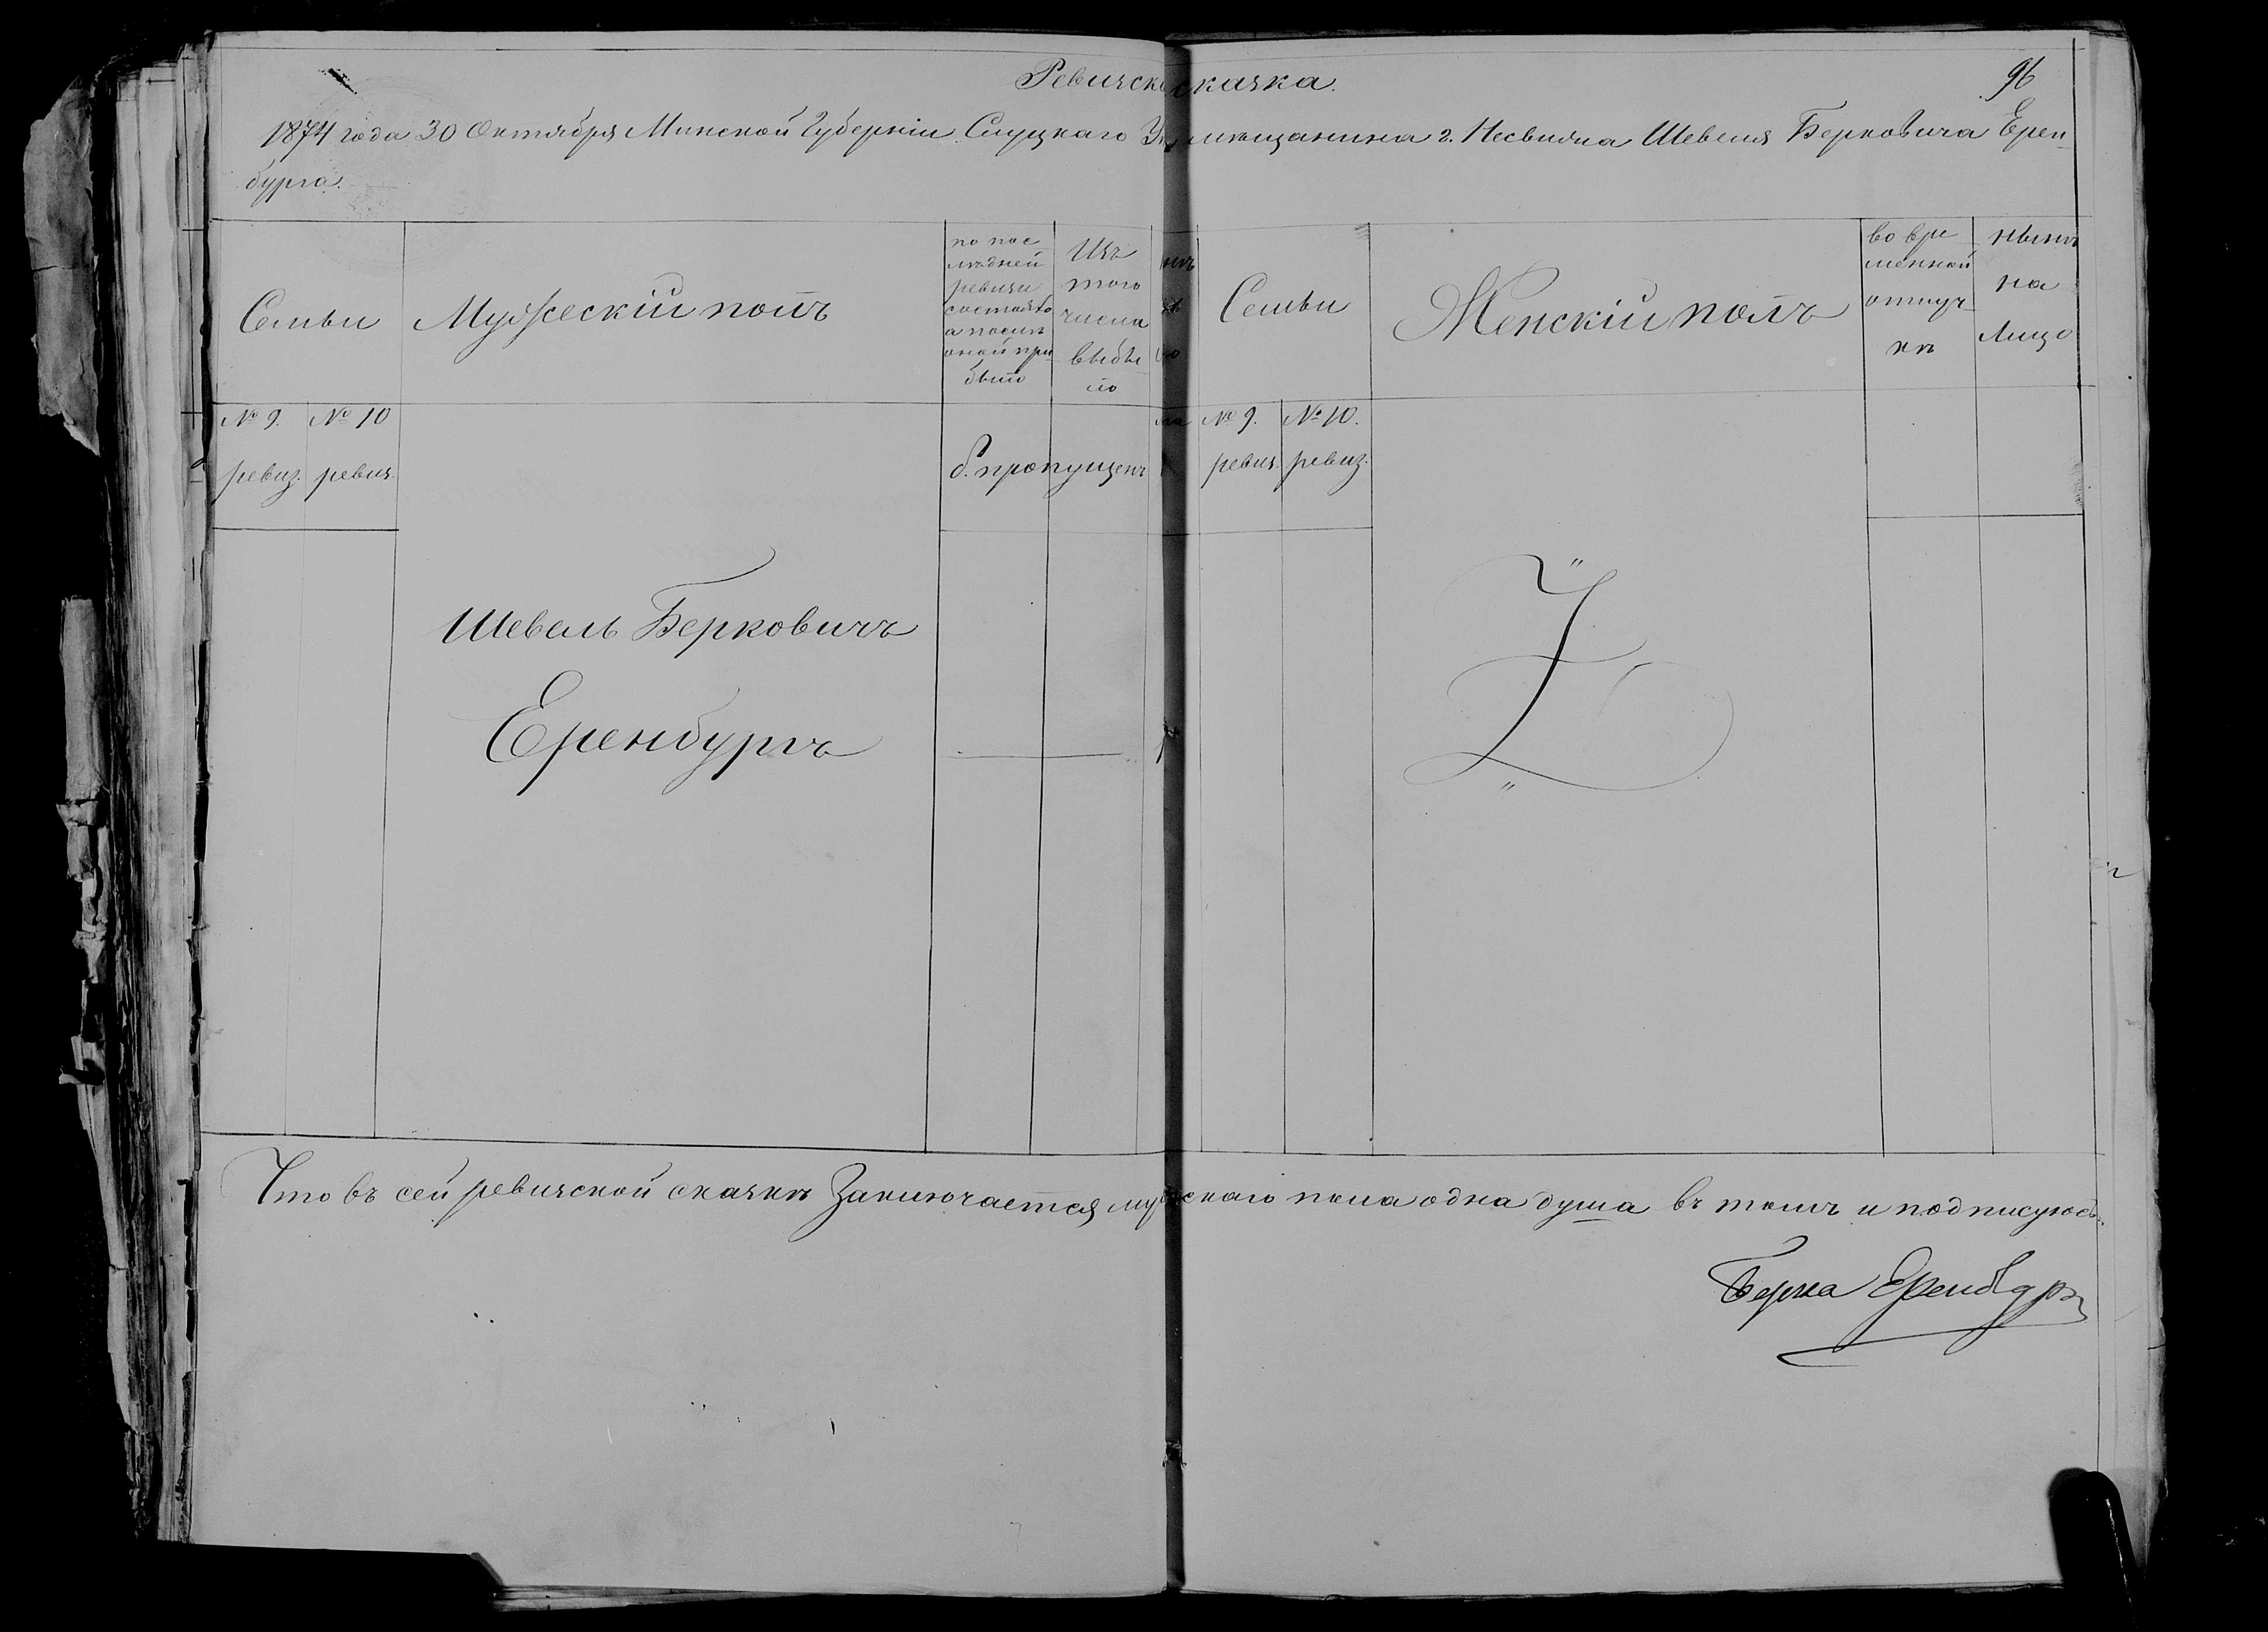 Ревизская сказка.
96
1874 года 30 Октября Минской Губерніи Слуцкаго мѣщанина г. Несвижа Шевеля Берковича Ерен
бурга.
Семьи
Мужескій полъ
по пос
лѣдней
ревизіи
состояло
а послѣ
оной при
было
Изъ
того
числа
выбы
ло
Семьи
Женскій полъ
во вре
менной
отлуч
кѣ
нынѣ
на
лицо
№ 9.
ревиз.
№ 10
ревиз.
б. пропущенъ
№ 9.
ревиз.
№ 10.
ревиз.
Шевель Берковичъ
Еренбургъ
Что въ сей ревизской сказкѣ Заключается мужескаго пола одна душа въ томъ и подписуюсь.
Берка Еренбург